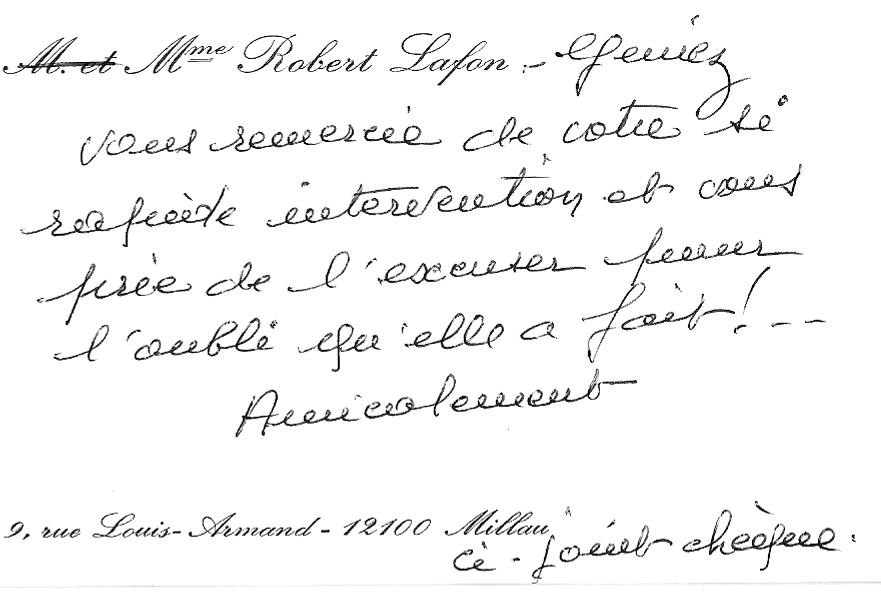 M. et Mme Robert Lafon :- Geniez
vous remercie de votre si
rapide intervention et vous
prie de l'excuser pour
l'oubli qu'elle a fait ! - -
Amicalement
9, rue Louis-Armand - 12100 Millau
ci-joint chèque.